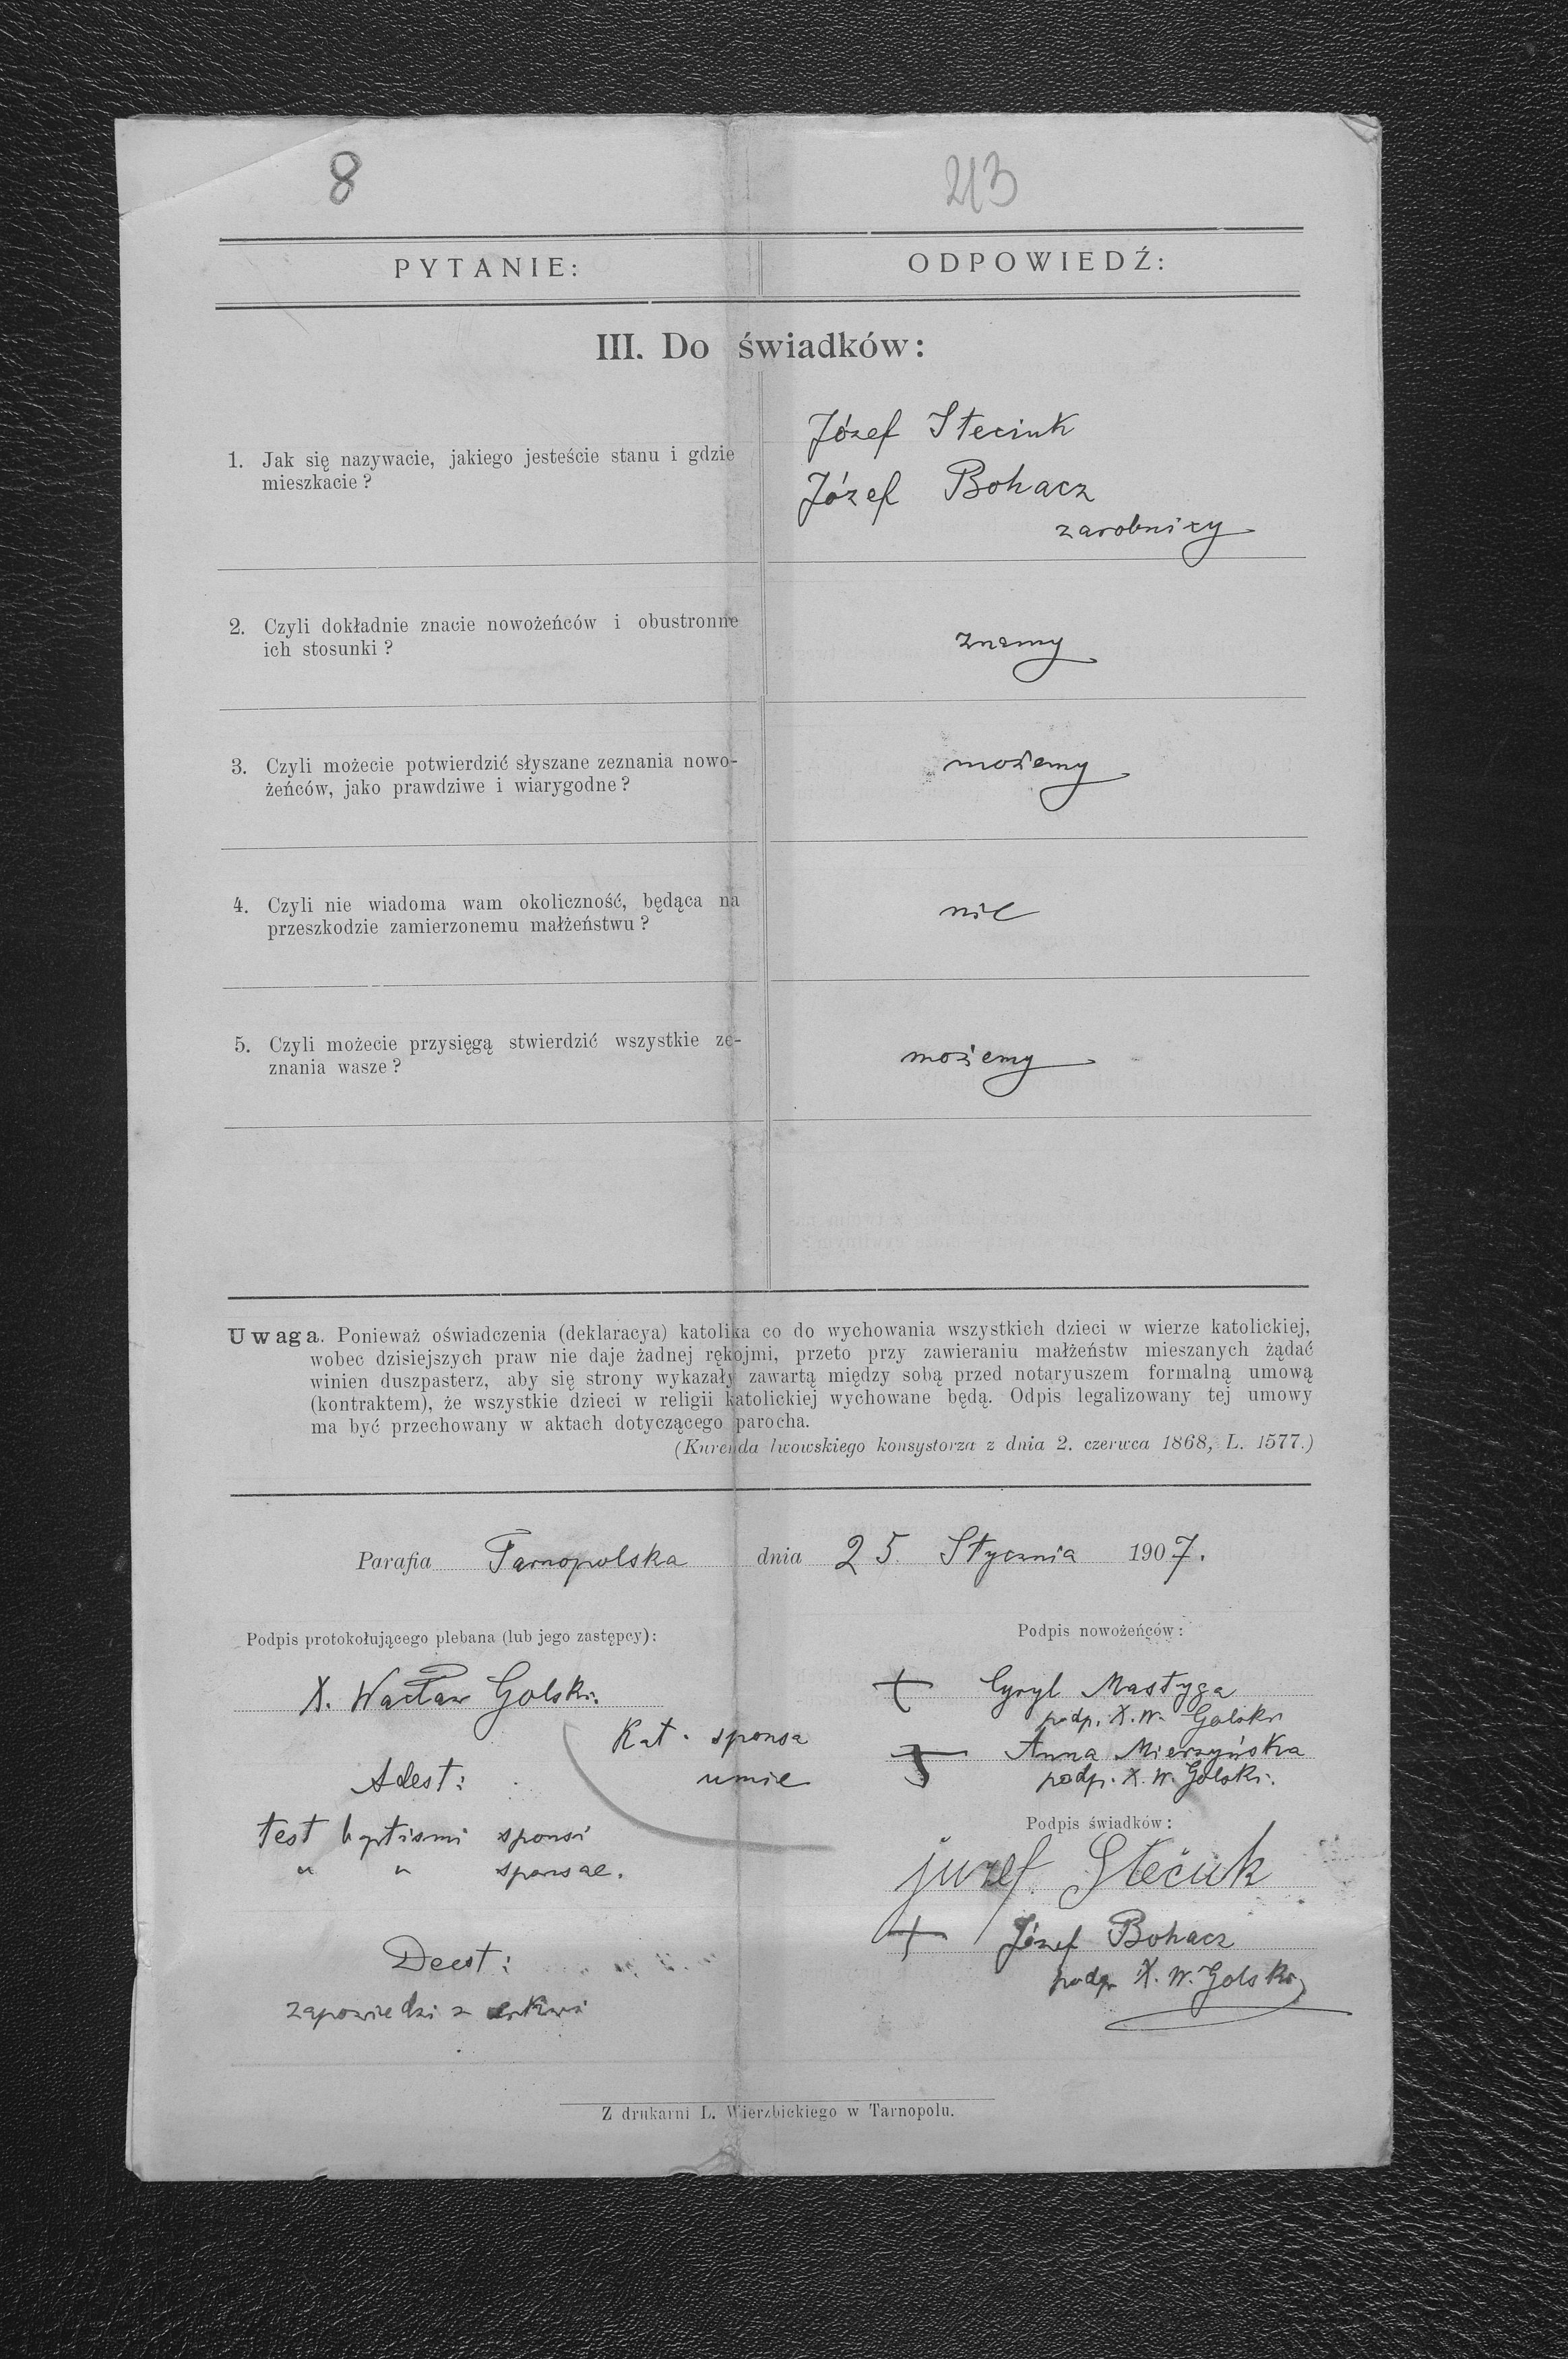 8 213
PYTANIE: ODPOWIEDŹ:
III. Do świadków:
1. Jak się nazywacie, jakiego jesteście stanu i gdzie
mieszkacie?
Józef Steciuk
Józef Bohacz
zarobnicy
2. Czyli dokładnie znacie nowożeńców i obustronne
ich stosunki?
znamy
3. Czyli możecie potwierdzić słyszane zeznania nowo-
żeńców, jako prawdziwe i wiarygodne?
możemy
4. Czyli nie wiadoma wam okoliczność, będąca na
przeszkodzie zamierzonemu małżeństwu?
nie
5. Czyli możecie przysięgą stwierdzić wszystkie ze-
znania wasze?
możemy
Uwaga. Ponieważ oświadczenia (deklaracya) katolika co do wychowania wszystkich dzieci w wierze katolickiej,
wobec dzisiejszych praw nie daje żadnej rękojmi, przeto przy zawieraniu małżeństw mieszanych żądać
winien duszpasterz, aby się strony wykazały zawartą między sobą przed notaryuszem formalną umową
(kontraktem), że wszystkie dzieci w religii katolickiej wychowane będą. Odpis legalizowany tej umowy
ma być przechowany w aktach dotyczącego parocha.
(Kurenda lwowskiego konsystorza z dnia 2. czerwca 1868, L. 1577.)
Parafia Tarnopolska dnia 25. Stycznia 1907.
Podpis protokołującego plebana (lub jego zastępcy):
X. Wacław Golski.
Kat. sponsa
umie
Adest:
test baptismi sponsi
" " sponsae.
Deest:
zapowiedzi z cerkwi
Podpis nowożeńców:
+ Cyryl Mastyga
podp. X. W. Golski
+ Anna Mierzyńska
podp. X. W. Golski.
Podpis świadków:
juzef Stećiuk
+ Józef Bohacz
podp X. W. Golski
Z drukarni L. Wierzbickiego w Tarnopolu.